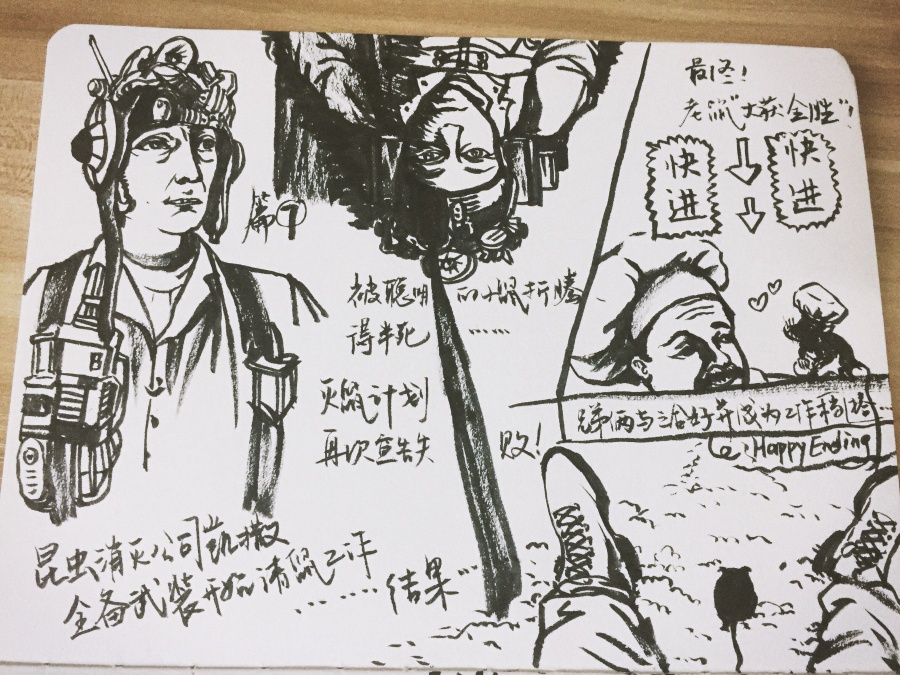 昆虫消灭公司凯撒
全备武装开始清鼠工作
……结果
篇⑦
被聪明的小鼠折腾
得半死……
灭鼠计划
再次宣告失败!
最终!
老鼠"大获全胜"!
快进
快进
与
和好并成为工作档
Happy Ending